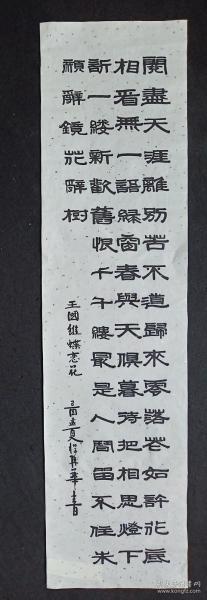 閱盡天涯離別苦不道歸來零落花如許花底
相看無一語綠窗春與天俱暮待把相思燈下
訴一縷新歡舊恨千千縷最是人間留不住朱
顏辭鏡花辭樹
王國維蝶恋花
孟夏